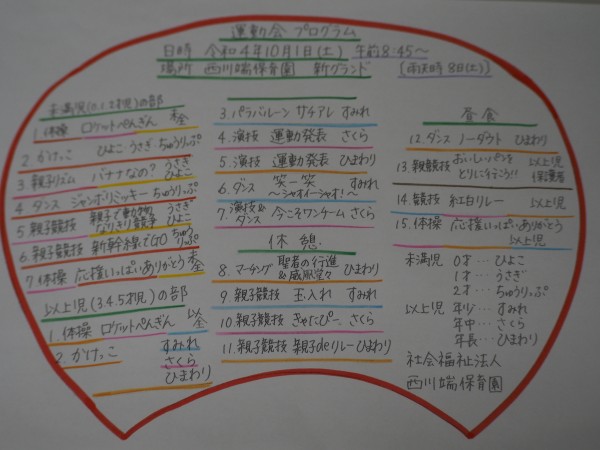 運動会 プログラム
日時 令和4年10月1日(土) 午前8:45〜
場所 西川端保育園 新グランド (雨天時 8日(土))
未満児(0.1.2才児)の部
1.体操 ロケットぺんぎん 未全
2.かけっこ ひよこ うさぎ ちゅうりっぷ
3.親子リズム バナナなの? うさぎ ひよこ
4.ダンス ジャンボリミッキー ちゅうりっぷ
5.親子競技 親子で動物なりきり競争 うさぎ ひよこ
6.親子競技 新幹線でGO ちゅうりっぷ
7.体操 応援いっぱいありがとう 未全
以上児(3.4.5才児)の部
1.体操 ロケットぺんぎん 以全
2.かけっこ すみれ
さくら
ひまわり
3.パラバルーン サチアレ すみれ
4.演技 運動発表 さくら
5.演技 運動発表 ひまわり
6.ダンス 笑一笑 すみれ
〜シャオイーシャオ!〜
7.演技&ダンス 今こそワンチーム さくら
休憩
8.マーチング 聖者の行進&威風堂々 ひまわり
9.親子競技 玉入れ すみれ
10.親子競技 きゃたぴー。 さくら
11.親子競技 親子deリレー ひまわり
昼食
12.ダンス ノーダウト ひまわり
13.親競技 おいしいパンをとりに行こう!! 以上児 保護者
14.競技 紅白リレー 以上児
15.体操 応援いっぱいありがとう
以上児
未満児 0才…ひよこ
1才…うさぎ
2才…ちゅうりっぷ
以上児 年少…すみれ
年中…さくら
年長…ひまわり
社会福祉法人
西川端保育園